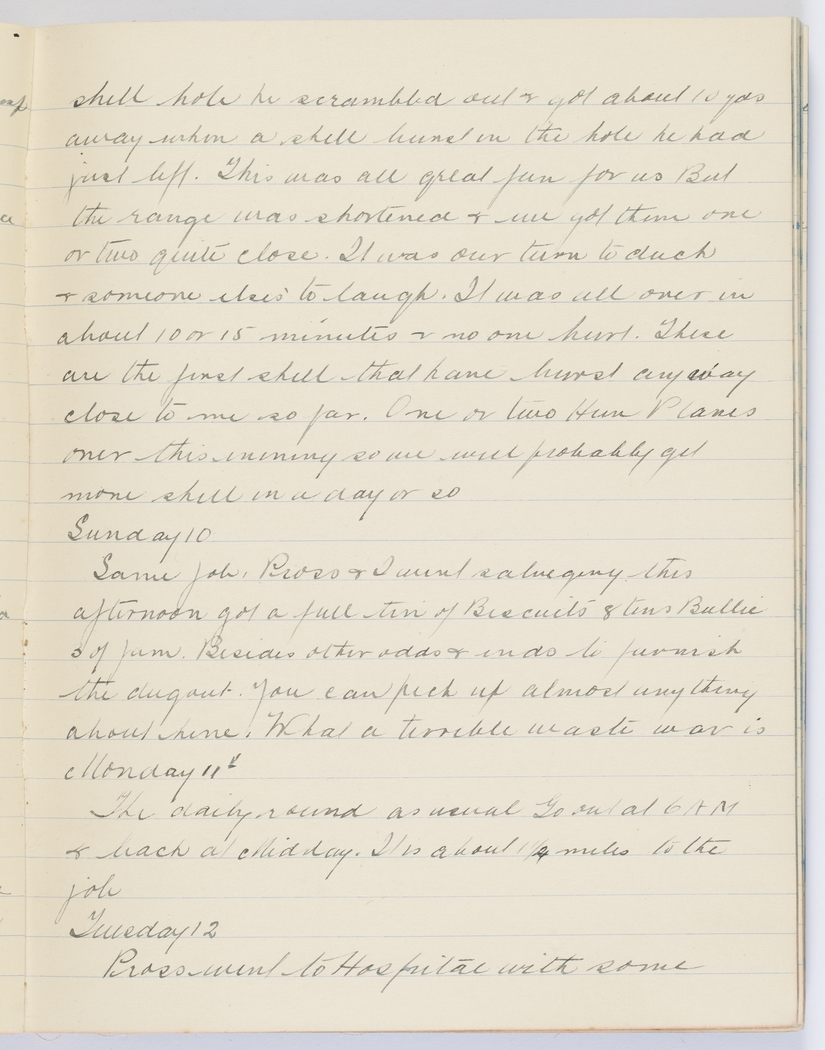 shell hole he scrambled out & got about 10 yds
away when a shell burst in the hole he had
just left. This was all great fun for us But
the range was shortened & we got them one
or two quite close. It was our turn to duck
& someone elses' to laugh. It was all over in
about 10 or 15 minutes & no one hurt. These
are the first shell that have burst anyway
close to me so far. One or two Hun Planes
over this morning so we will probably get
more shell in a day or so
Sunday 10
Same job. Pross & I went salvaging this
afternoon got a full tin of Biscuits 8 tins Bullie
3 of jam. Besides other odds & ends to furnish
the dugout. You can pick up almost anything
about here. What a terrible waste war is
Monday 11th
The daily round as usual Go out at 6 AM
& back at Midday. It is about 1 1/4 miles to the
job
Tuesday 12
Pross went to Hospital with some